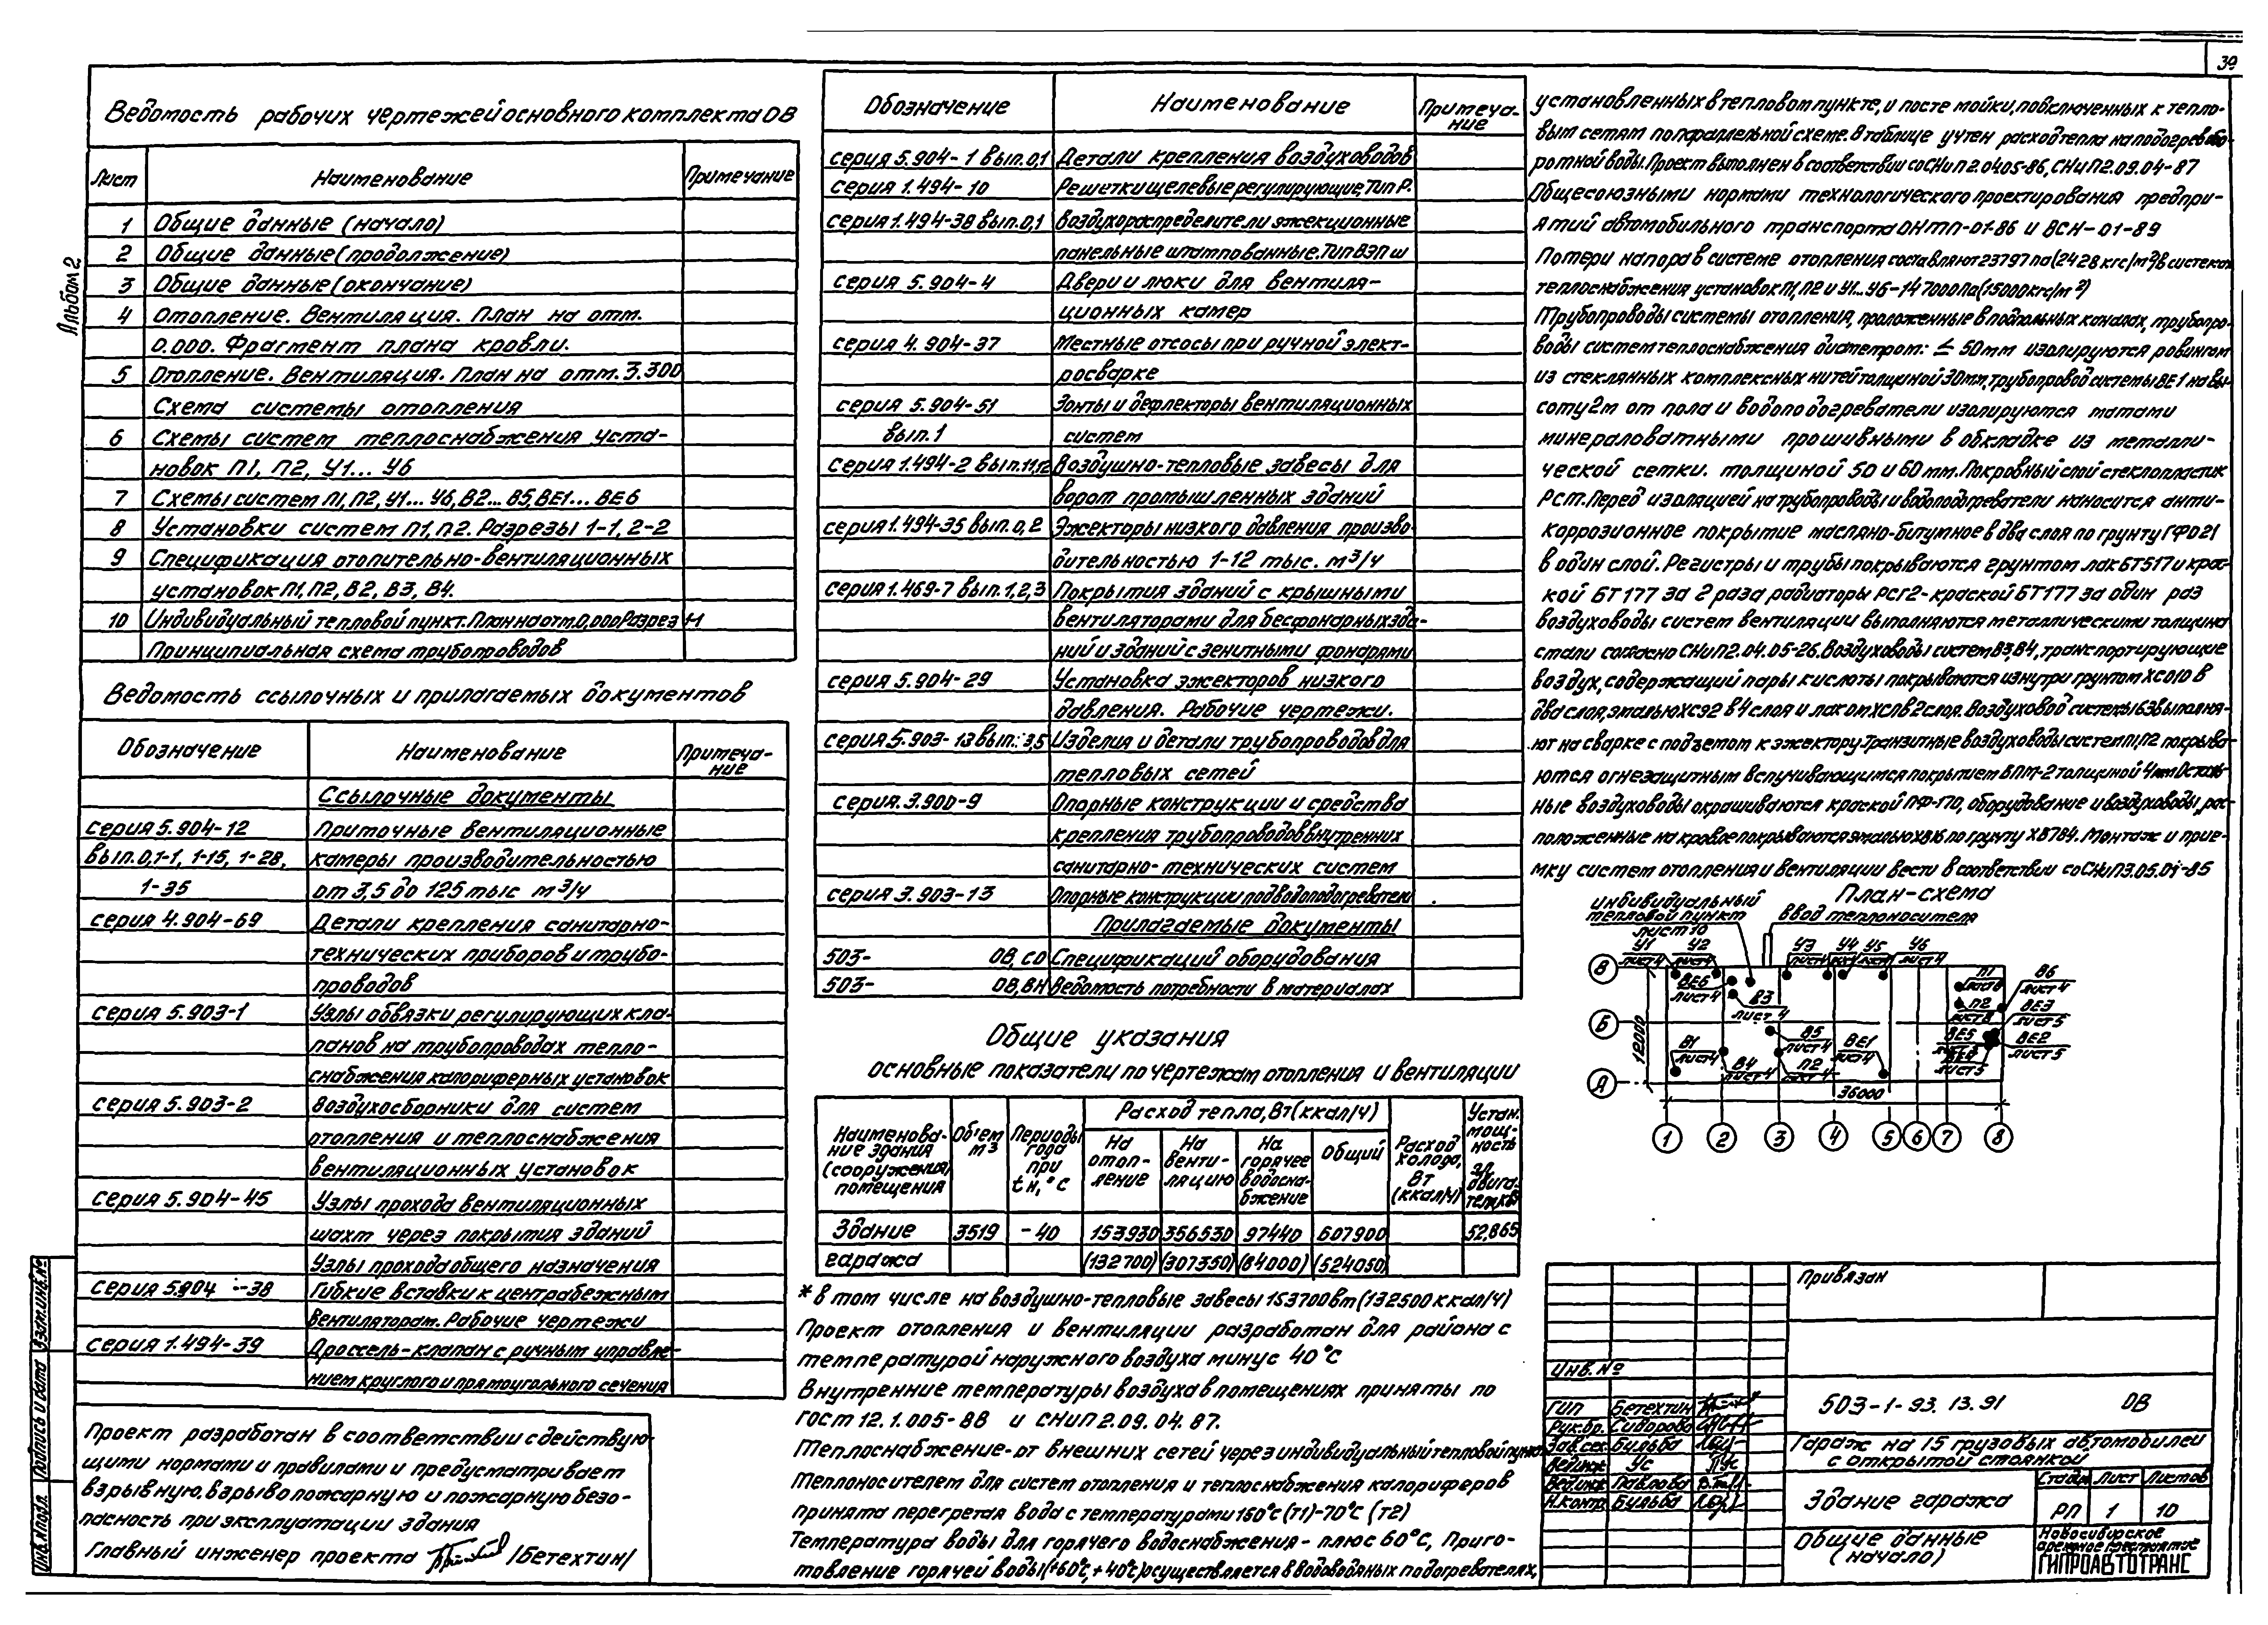 39
Альбом 2
Ведомость рабочих чертежей основного комплекта ОВ
Лист Наименование Примечание
1 Общие данные (начало)
2 Общие данные (продолжение)
3 Общие данные (окончание)
4 Отопление. Вентиляция. План на отм.
0.000. Фрагмент плана кровли.
5 Отопление. Вентиляция. План на отм. 3.300
Схема системы отопления
6 Схемы систем теплоснабжения уста-
новок П1, П2, У1... У6
7 Схемы систем П1, П2, У1... У6, В2... В5, ВЕ1... ВЕ6
8 Установки систем П1, П2. Разрезы 1-1, 2-2
9 Спецификация отопительно-вентиляционных
установок П1, П2, В2, В3, В4.
10 Индивидуальный тепловой пункт. План на отм. 0,000 Разрез 1-1
Принципиальная схема трубопроводов
Ведомость ссылочных и прилагаемых документов
Обозначение Наименование Примеча-
ние
Ссылочные документы
серия 5.904-12 Приточные вентиляционные
вып. 0,1-1, 1-15, 1-28, камеры производительностью
1-35 от 3,5 до 125 тыс м³/ч
серия 4.904-69 Детали крепления санитарно-
технических приборов и трубо-
проводов
серия 5.903-1 Узлы обвязки регулирующих кла-
панов на трубопроводах тепло-
снабжения калориферных установок
серия 5.903-2 Воздухосборники для систем
отопления и теплоснабжения
вентиляционных установок
серия 5.904-45 Узлы прохода вентиляционных
шахт через покрытия зданий
Узлы прохода общего назначения
серия 5.904-38 Гибкие вставки к центробежным
вентиляторам. Рабочие чертежи
серия 1.494-39 Дроссель-клапан с ручным управле-
нием круглого и прямоугольного сечения
Проект разработан в соответствии с действую-
щими нормами и правилами и предусматривает
взрывную, взрывопожарную и пожарную безо-
пасность при эксплуатации здания
Главный инженер проекта /Бетехтин/
Взам. инв. №
Подпись и дата
Инв. № подл.
Обозначение Наименование Примеча-
ние
серия 5.904-1 вып. 0,1 Детали крепления воздуховодов
серия 1.494-10 Решетки щелевые регулирующие, тип Р.
серия 1.494-38 вып. 0,1 Воздухораспределители эжекционные
панельные штампованные. Тип ВЭПш
серия 5.904-4 Двери и люки для вентиля-
ционных камер
серия 4.904-37 Местные отсосы при ручной элект-
росварке
серия 5.904-51 Зонты и дефлекторы вентиляционных
вып. 1 систем
серия 1.494-2 вып. 11,12 Воздушно-тепловые завесы для
ворот промышленных зданий
серия 1.494-35 вып. 0,2 Эжекторы низкого давления произво-
дительностью 1-12 тыс. м³/ч
серия 1.469-7 вып. 1,2,3 Покрытия зданий с крышными
вентиляторами для бесфонарных зда-
ний и зданий с зенитными фонарями
серия 5.904-29 Установка эжекторов низкого
давления. Рабочие чертежи.
серия 5.903-13 вып.: 3,5 Изделия и детали трубопроводов для
тепловых сетей
серия. 3.900-9 Опорные конструкции и средства
крепления трубопроводов внутренних
санитарно-технических систем
серия 3.903-13 Опорные конструкции под водоподогреватели
Прилагаемые документы
503- ОВ, СО Спецификаций оборудования
503- ОВ, ВМ Ведомость потребности в материалах
Общие указания
основные показатели по чертежам отопления и вентиляции
Наименова-
ние здания
(сооружения)
помещения
Объем
м³
Периоды
года
при
tн, °С
Расход тепла, Вт (ккал/ч)
На
отоп-
ление
На
венти-
ляцию
На
горячее
водосна-
бжение
Общий
Расход
холода,
Вт
(ккал/ч)
Устан.
мощ-
ность
эл.
двига-
тел., кВт
Здание 3519 -40 153930 356530 97440 607900 52,865
гаража (132700) (307350) (84000) (524050)
* в том числе на воздушно-тепловые завесы 153700 вт (132500 ккал/ч)
Проект отопления и вентиляции разработан для района с
температурой наружного воздуха минус 40°С
Внутренние температуры воздуха в помещениях приняты по
ГОСТ 12.1.005-88 и СНиП 2.09.04.87.
Теплоснабжение-от внешних сетей через индивидуальный тепловой пункт
Теплоносителем для систем отопления и теплоснабжения калориферов
принята перегретая вода с температурами 150°С (Т1)-70°С (Т2)
Температура воды для горячего водоснабжения - плюс 60°С, Приго-
товление горячей воды (+60°С, +40°С) осуществляется в водоводяных подогревателях,
установленных в тепловом пункте, и посте мойки, подключенных к тепло-
вым сетям по параллельной схеме. В таблице учтен расход тепла на подогрев обо-
ротной воды. Проект выполнен в соответствии со СНиП 2.04.05-86, СНиП 2.09.04-87
Общесоюзными нормами технологического проектирования предпри-
ятий автомобильного транспорта ОНТП-01-86 и ВСН-01-89
Потери напора в системе отопления составляют 23797 па (2428 кгс/м²) в системах
теплоснабжения установок П1, П2 и У1... У6-147000 Па (15000 кгс/м²)
Трубопроводы системы отопления, проложенные в подпольных каналах, трубопро-
воды систем теплоснабжения диаметром: ≤ 50 мм изолируются ровингом
из стеклянных комплексных нитей толщиной 30 мм, трубопровод системы ВЕ1 на вы-
соту 2м от пола и водоподогреватели изолируются матами
минераловатными прошивными в обкладке из металли-
ческой сетки. толщиной 50 и 60 мм. Покровный слой стеклопластик
Рст. Перед изоляцией на трубопроводы и водоподогреватели наносится анти-
коррозионное покрытие масляно-битумное в два слоя по грунту ГФ021
в один слой. Регистры и трубы покрываются грунтом лак БТ577 и крас-
кой БТ177 за 2 раза радиаторы РСГ2-краской БТ177 за один раз
Воздуховоды систем вентиляции выполняются металлическими толщина
стали согласно СНиП 2.04.05-26. Воздуховоды систем В3, В4, транспортирующие
воздух, содержащий пары кислоты покрываются изнутри грунтом ХС010 в
два слоя, эмалью ХС92 в 4 слоя и лаком ХСЛ в 2 слоя. Воздуховод системы В3 выполня-
ют на сварке с подъемом к эжектору. Транзитные воздуховоды систем П1, П2 покрыва-
ются огнезащитным вспучивающимся покрытием ВПМ-2 толщиной 4 мм Осталь-
ные воздуховоды окрашиваются краской ПФ-170, оборудование и воздуховоды, рас-
положенные на кровле покрываются эмалью ХВ16 по грунту ХВ784. Монтаж и прие-
мку систем отопления и вентиляции вести в соответствии со СНиП 3.05.01-85
План-схема
индивидуальный
тепловой пункт
лист 10
ввод теплоносителя
У1 У2 У3 У4 У5 У6
лист 4 лист 4 лист 4 лист 4
В Б А
ВЕ6
лист 4
В3
лист 4
П1
лист 8
П2
лист 8
В6
лист 4
ВЕ3
лист 5
ВЕ2
лист 5
ВЕ5
ВЕ4
лист 5
В1
лист 4
В4
лист 4
В5
лист 4
П2
лист 4
ВЕ1
лист 4
12000
36000
1 2 3 4 5 6 7 8
Привязан
Инв. №
ГИП Бетехтин
Рук.бр. Сидорова
Зав.сек. Бульба
Вед.инж. Ус
Вед.инж. Павлова
Н.контр. Бульба
503-1-93.13.91 ОВ
Гараж на 15 грузовых автомобилей
с открытой стоянкой
Здание гаража
Стадия Лист Листов
РП 1 10
Общие данные
(начало)
Новосибирское
арендное предприятие
ГИПРОАВТОТРАНС